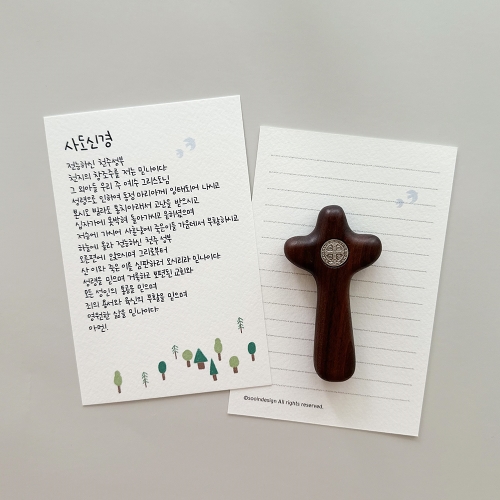 사도신경
전능하신 천주 성부
천지의 창조주를 저는 믿나이다
그 외아들 우리 주 예수 그리스도님
성령으로 인하여 동정 마리아께 잉태되어 나시고
본시오 빌라도 통치아래서 고난을 받으시고
십자가에 못박혀 돌아가시고 묻히셨으며
저승에 가시어 사흗날에 죽은이들 가운데서 부활하시고
하늘에 올라 전능하신 천주 성부
오른편에 앉으시며 그리로부터
산 이와 죽은 이를 심판하러 오시리라 믿나이다
성령을 믿으며 거룩하고 보편된 교회와
모든 성인의 통공을 믿으며
죄의 용서와 육신의 부활을 믿으며
영원한 삶을 믿나이다
아멘!
©sooindesign All rights reserved.